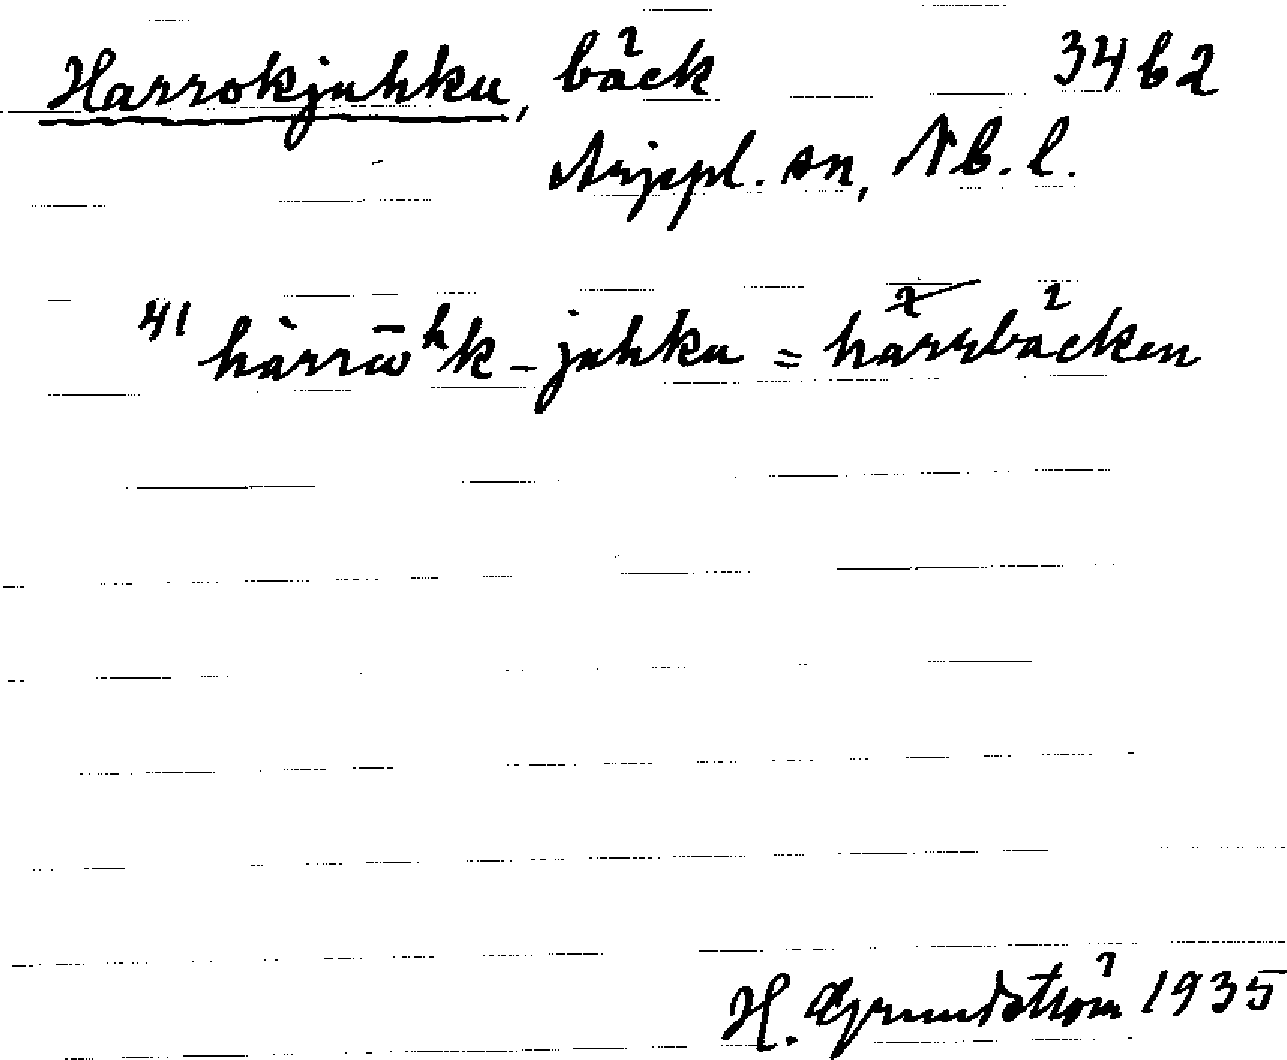 Harrokjuhku, bäck 34 b 2
Arjepl. sn, Nb. l.
41 hàrrō hk - juhku = harrbäcken
H. Grundström 1935